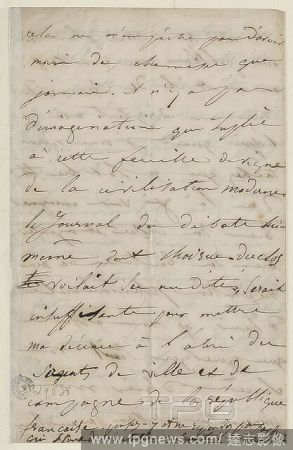 cela ne m'empêche pas d'avoir
moins de chemises que
jamais. il n'y a pas
d'imagination qui supplée
à cette feuille de vigne
de la civilisation moderne
le Journal des débats lui-
même, dont Chodruc-Duclos
voilait sa nudité, serait
insuffisante pour mettre
ma décence à l'abri des
sergents de ville et de
campagne de la république
française
TPG
www.tpgnews.com / 達志影像